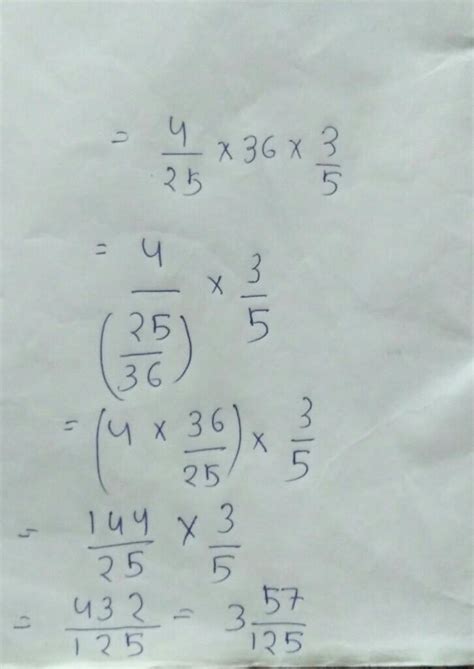 = 4/25 × 36 × 3/5
= 4/(25/36) × 3/5
= (4 × 36/25) × 3/5
= 144/25 × 3/5
= 432/125 = 3 57/125